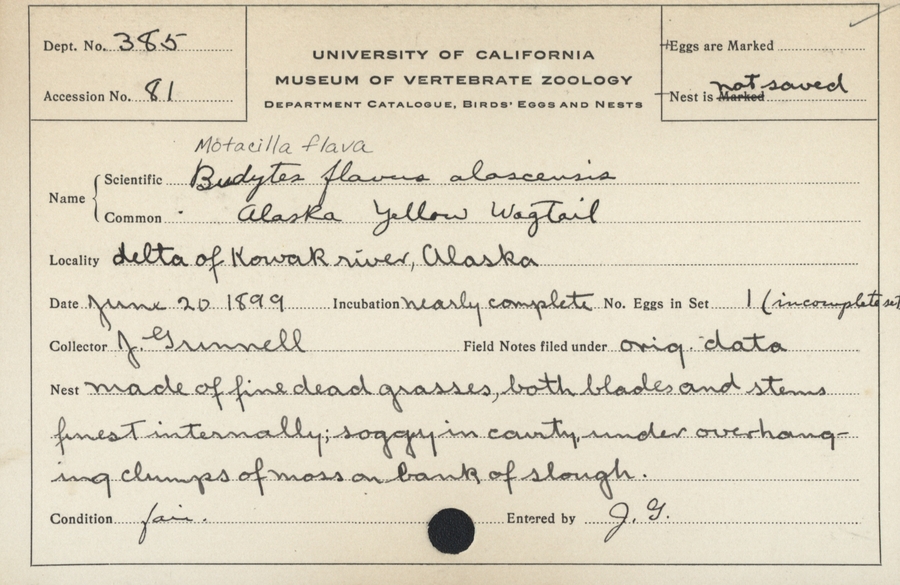 Dept. No. 385
Accession No. 81
UNIVERSITY OF CALIFORNIA
MUSEUM OF VERTEBRATE ZOOLOGY
DEPARTMENT CATALOGUE, BIRDS' EGGS AND NESTS
Eggs are Marked
Nest is Marked not saved
Motacilla flava
Name Scientific Budytes flavus alascensis
Common Alaska Yellow Wagtail
Locality delta of Kowak river, Alaska
Date June 20 1899 Incubation nearly complete No. Eggs in Set 1 (incomplete set
Collector J. Grinnell Field Notes filed under orig. data
Nest made of fine dead grasses, both blades and stems
finest internally; soggy in cavity, under overhang-
ing clumps of moss on bank of slough.
Condition fair. Entered by J. G.